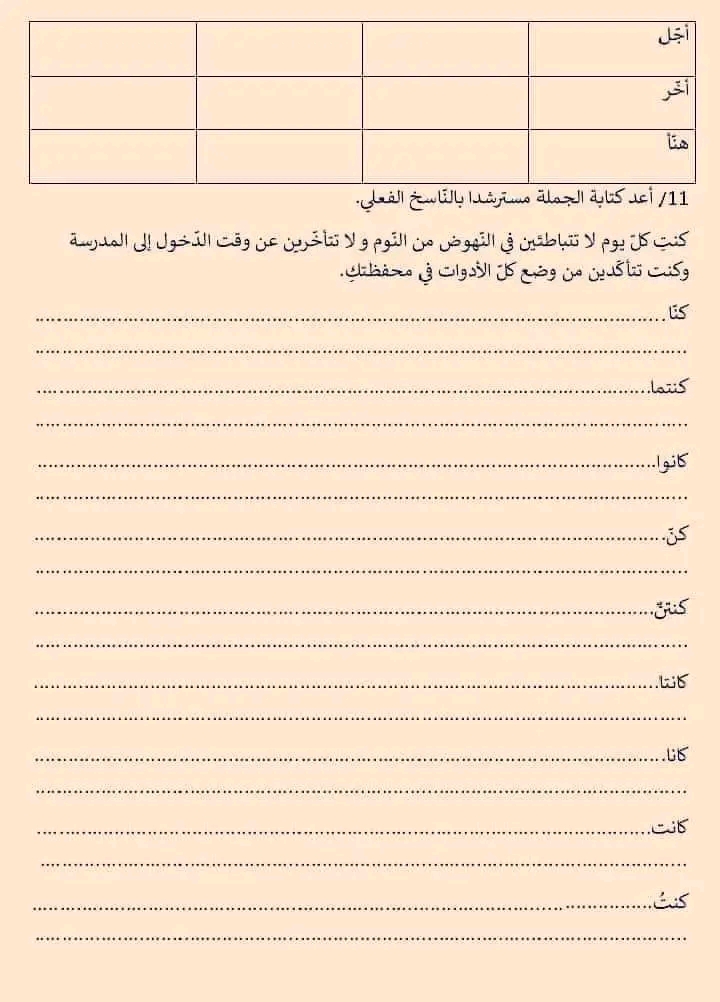 أجّل
أخّر
هنّأ
11/ أعد كتابة الجملة مسترشدا بالنّاسخ الفعلي.
كنتِ كلّ يوم لا تتباطئين في النّهوض من النّوم و لا تتأخّرين عن وقت الدّخول إلى المدرسة
وكنت تتأكّدين من وضع كلّ الأدوات في محفظتكِ.
كنّا................................................................................
................................................................................
كنتما................................................................................
................................................................................
كانوا................................................................................
................................................................................
كنّ................................................................................
................................................................................
كنتنّ................................................................................
................................................................................
كانتا................................................................................
................................................................................
كانا................................................................................
................................................................................
كانت................................................................................
................................................................................
كنتُ................................................................................
................................................................................